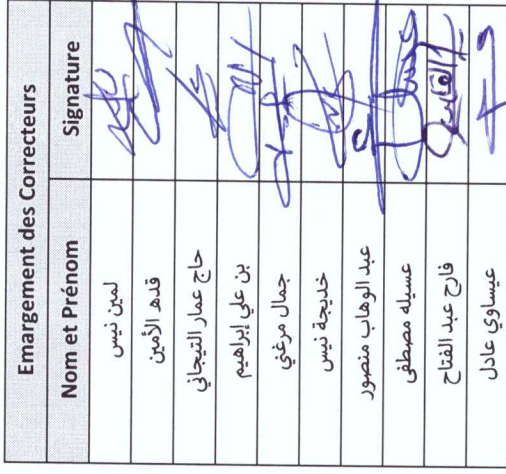 Emargement des Correcteurs
Nom et Prénom Signature
لمين نيس
قده الأمين
حاج عمار التيجاني
بن علي إبراهيم
جمال مرغني
خديجة نيس
عبد الوهاب منصور
عسيله مصطفى
فارح عبد الفتاح
عيساوي عادل